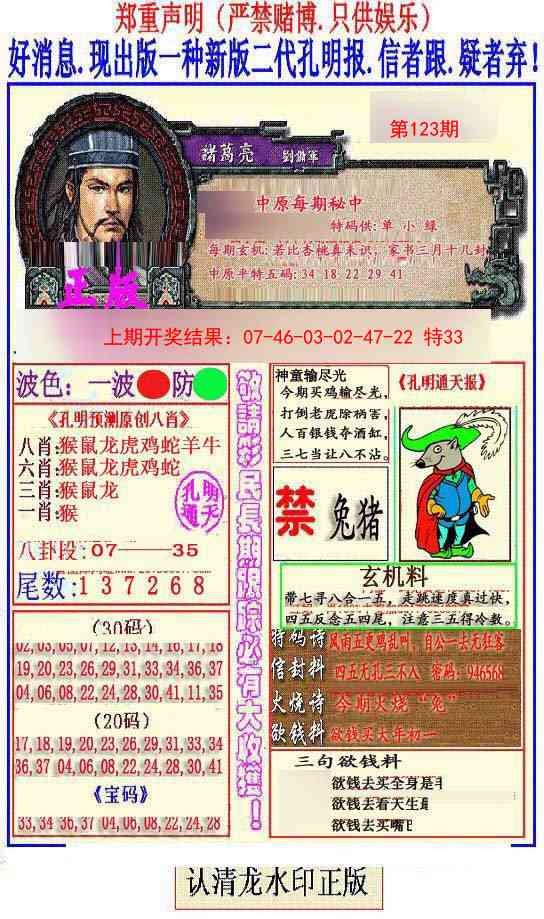 郑重声明（严禁赌博.只供娱乐）
好消息.现出版一种新版二代孔明报.信者跟.疑者弃！
第123期
諸葛亮 劉備軍
中原每期秘中
特码供: 单 小 绿
每期玄机: 若比杏桃真未识；家书三月十几封
中原平特五码: 34 18 22 29 41
正版
上期开奖结果：07-46-03-02-47-22 特33
波色：一波 防
《孔明预测原创八肖》
八肖:猴鼠龙虎鸡蛇羊牛
六肖:猴鼠龙虎鸡蛇
三肖:猴鼠龙
一肖:猴
孔明
通天
八卦段:07——35
尾数:137268
(30码)
02,03,05,07,12,13,14,16,17,18
19,20,23,26,29,31,33,34,36,37
04,06,08,22,24,28,30,41,11,35
(20码)
17,18,19,20,23,26,29,31,33,34
36,37 04,06,08,22,24,28,30,41
《宝码》
33,34 36,37 04,06,08,22,24,28
敬請彩民長期跟踪必有大收獲！
神童输尽光
今期买鸡输尽光，
打倒老虎除祸害，
人百银钱夺酒缸，
三七当让八不沾。
《孔明通天报》
禁 兔猪
玄机料
带七寻八合一五，走跳速度真过快，
四五反念五四尾，注意三五得冷数。
特码诗 风雨五更鸡乱叫，自公一去无狂客
信封料 四五无孔三不入 密码：946568
火烧诗 今期火烧“兔”
欲钱料 欲钱买大年初一
三句欲钱料
欲钱去买全身是
欲钱去看天生
欲钱去买嘴
认清龙水印正版